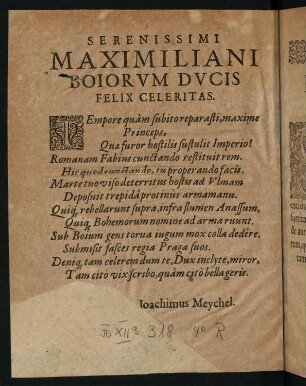 SERENISSIMI
MAXIMILIANI
BOIORVM DVCIS
FELIX CELERITAS.
TEmpore quàm subito reparasti, maxime
Princeps,
Qua furor hostilis sustulit Imperio!
Romanam Fabius cunctando restituit rem.
Hic quod cunctando, tu properando facis.
Marte tuo viso deterritus hostis ad Vlmam
Deposuit trepidâ protinus arma manu.
Quiq, rebellarunt supra, infra flumen Anassum,
Quiq, Bohemorum nomine ad arma ruunt.
Sub Boium gens torua iugum mox colla dedêre.
Submisit fasces regia Praga suos.
Deniq, tam celerem dum te, Dux inclyte, miror,
Tam citò vix scribo, quàm citò bella geris.
Ioachimus Meychel.
318 4o R